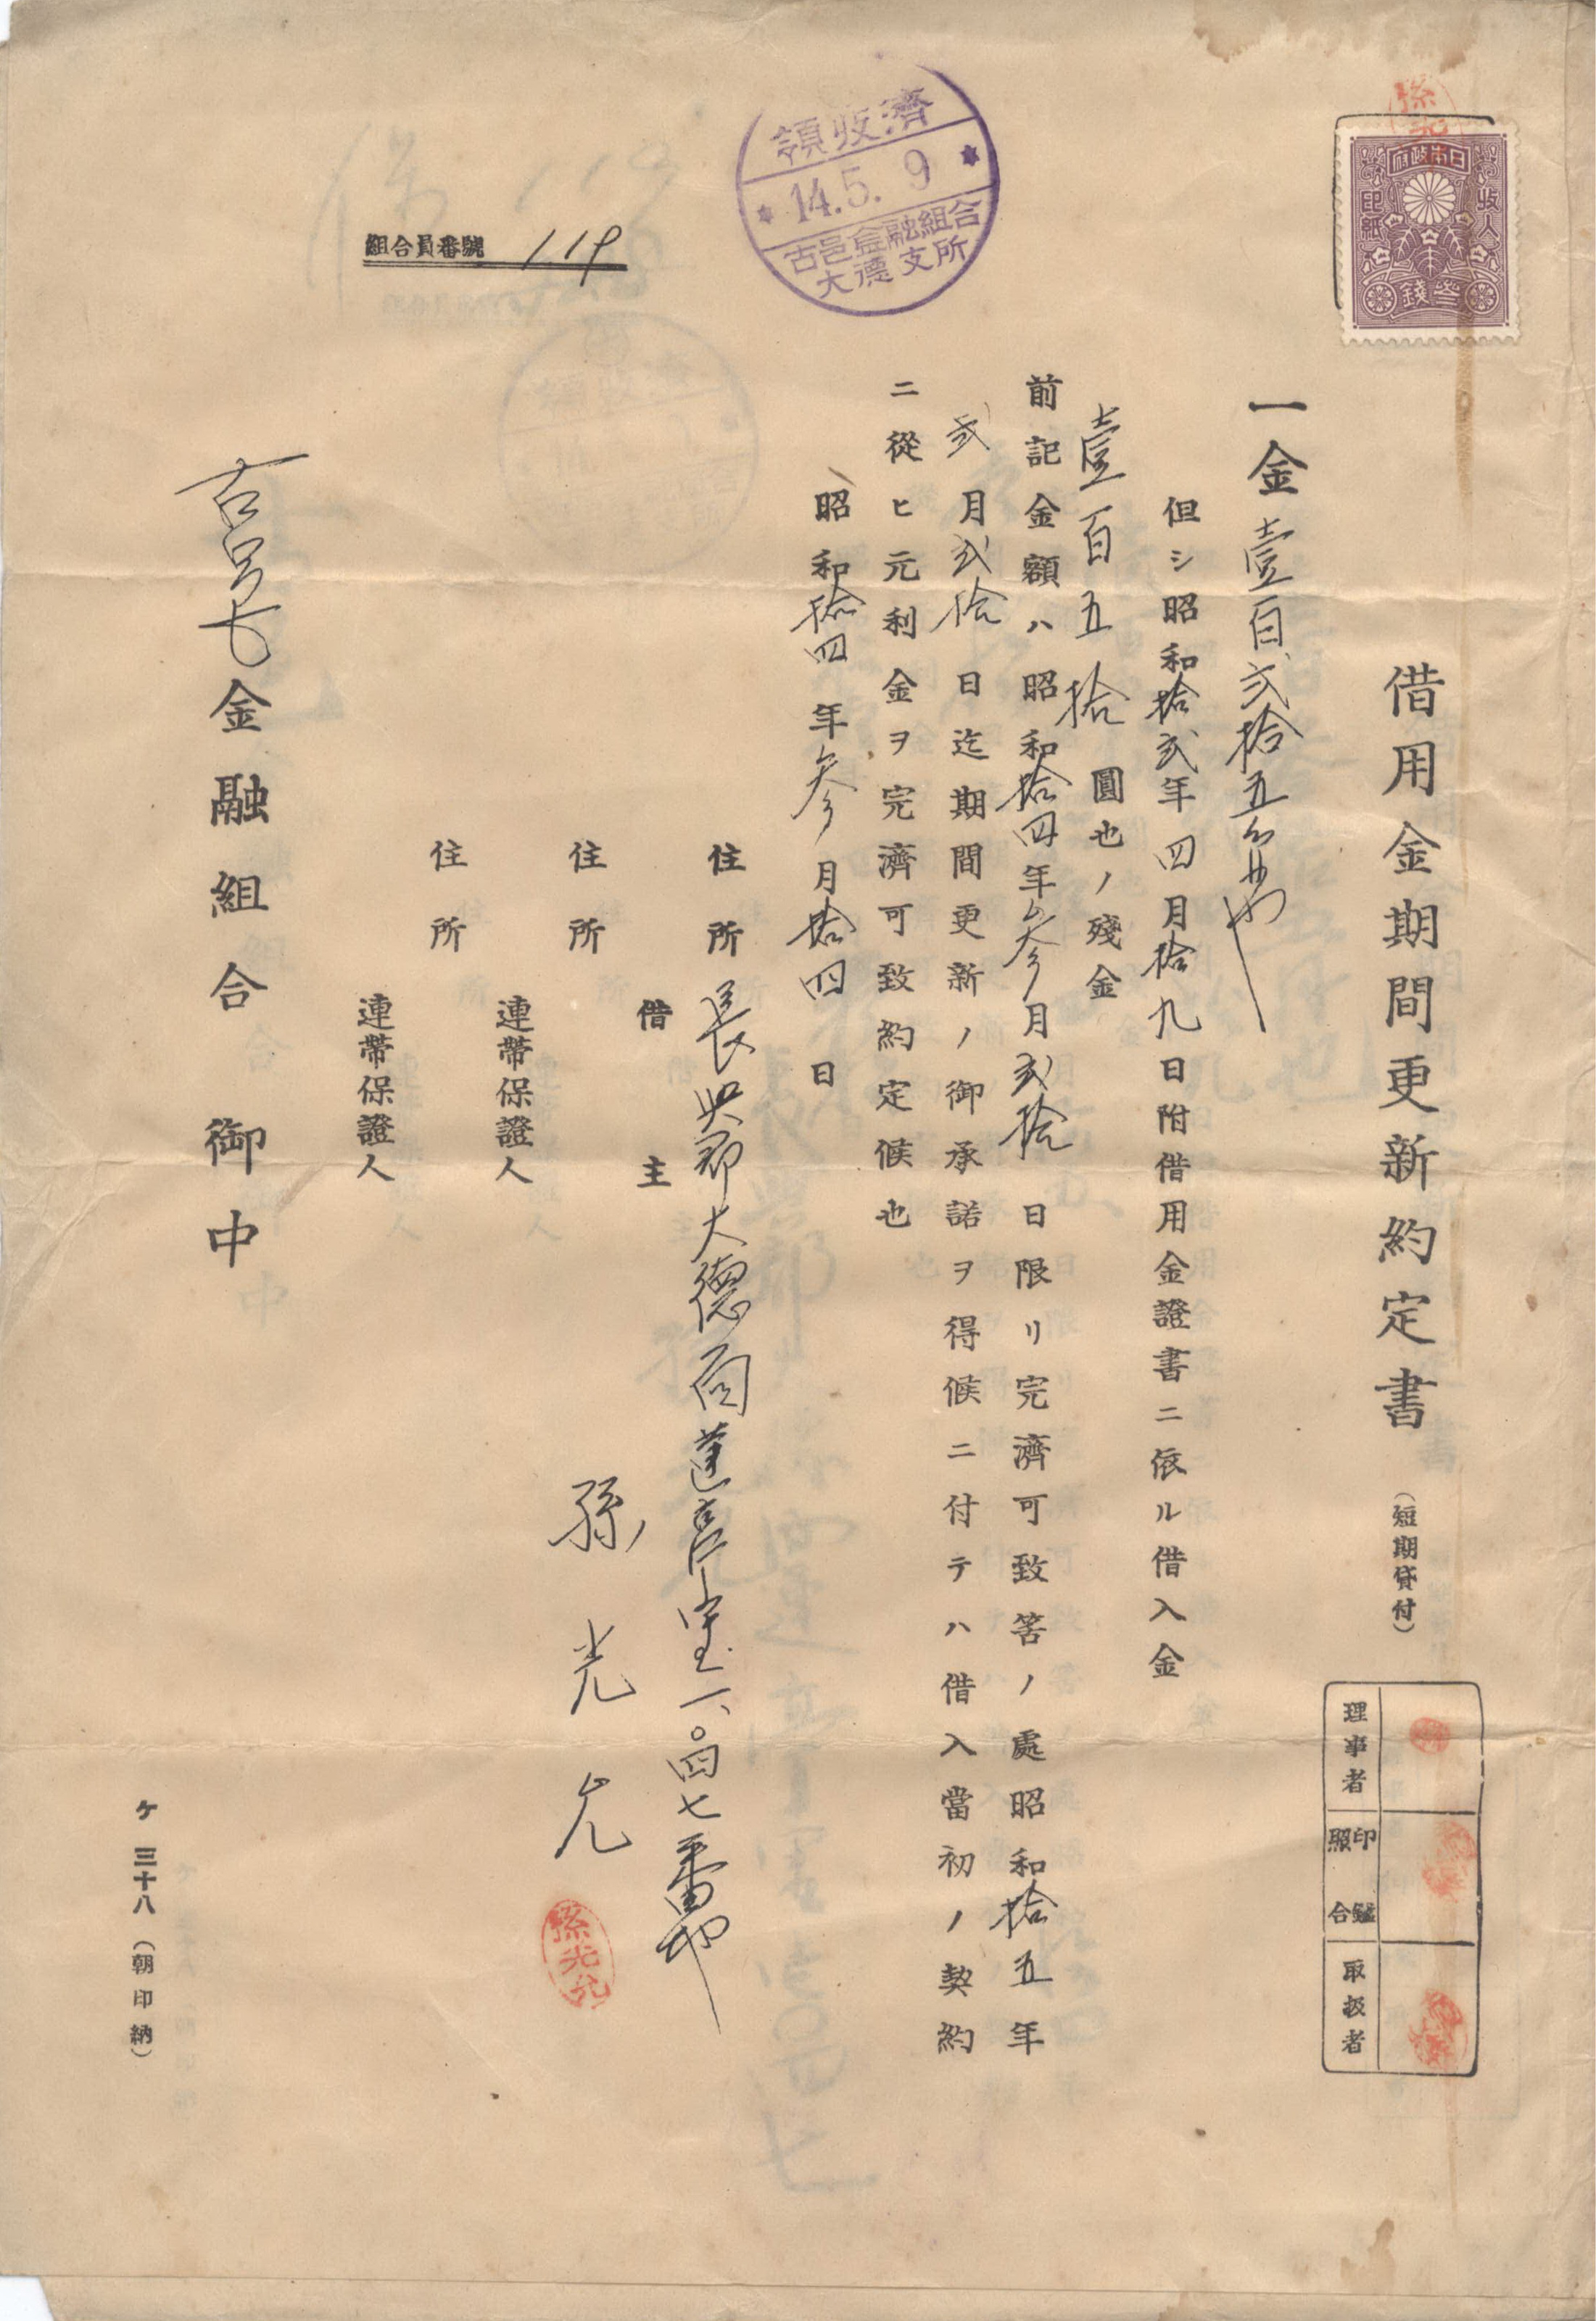 借用金期間更新約定書（短期貸付）
一金壹百貳拾五円也
但シ昭和拾貳年四月拾九日附借用金證書ニ依ル借入金
壹百五拾圓也ノ殘金
前記金額ハ昭和拾四年參月貳拾日限リ完濟可致筈ノ處昭和拾五年
貳月貳拾日迄期間更新ノ御承諾ヲ得候ニ付テハ借入當初ノ契約
ニ從ヒ元利金ヲ完濟可致約定候也
昭和拾四年參月拾四日
住所 長興郡大德面蓮亭里一、〇四七番地
借主 孫光允
孫光允
住所
連帶保證人
住所
連帶保證人
古邑金融組合 御中
組合員番號 119
領收濟
14.5.9
古邑金融組合
大德支所
日本政府
收入
印紙
參錢
理事者
印鑑
照合
取扱者
ケ 三十八（朝印納）